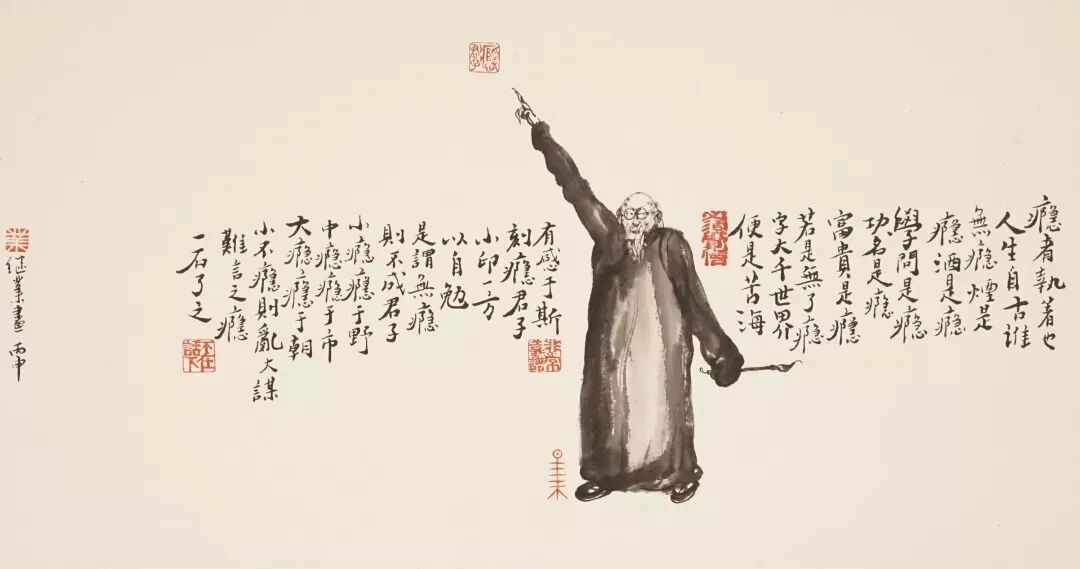 癮者執著也
人生自古誰
無癮煙是
癮酒是癮
學問是癮
功名是癮
富貴是癮
若是無了癮
字大千世界
便是苦海
有感于斯
刻癮君子
小印一方
以自勉
是謂無癮
則不成君子
小癮癮于野
中癮癮于市
大癮癮于朝
小不癮則亂大謀
難言之癮
一石了之
不在話下
業
继業畫 丙申